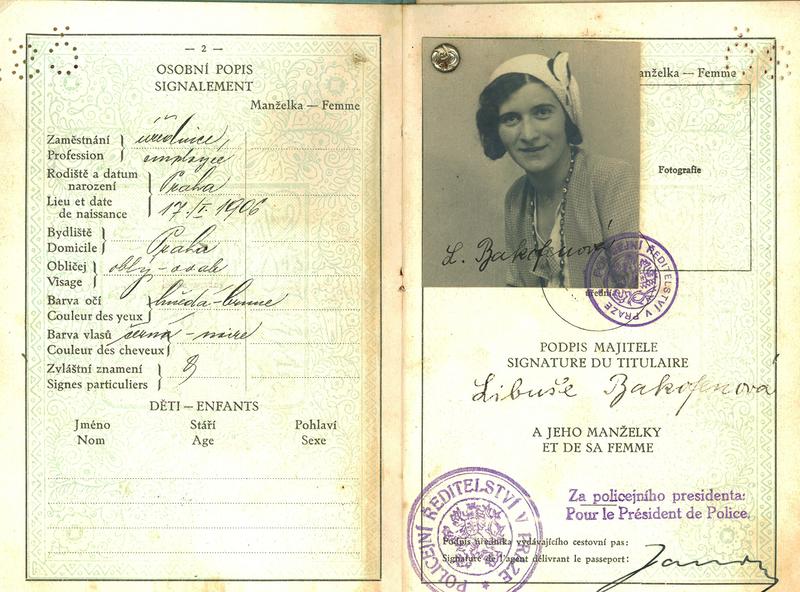 — 2 —
OSOBNÍ POPIS
SIGNALEMENT
Manželka — Femme
Zaměstnání
Profession
úřednice
employée
Rodiště a datum
narození
Lieu et date
de naissance
Praha
17./I. 1906
Bydliště
Domicile
Praha
Obličej
Visage
oblý-ovale
Barva očí
Couleur des yeux
hnědá-brune
Barva vlasů
Couleur des cheveux
černá-noire
Zvláštní znamení
Signes particuliers
DĚTI — ENFANTS
Jméno Stáří Pohlaví
Nom Age Sexe
anželka — Femme
Fotografie
L. Bakofenová
POLICEJNÍ ŘEDITELSTVÍ V PRAZE
PODPIS MAJITELE
SIGNATURE DU TITULAIRE
Libuše Bakofenová
A JEHO MANŽELKY
ET DE SA FEMME
Za policejního presidenta:
Pour le Président de Police.
POLICEJNÍ ŘEDITELSTVÍ V PRAZE
Podpis úředníka vydávajícího cestovní pas:
Signature de l'agent délivrant le passeport: